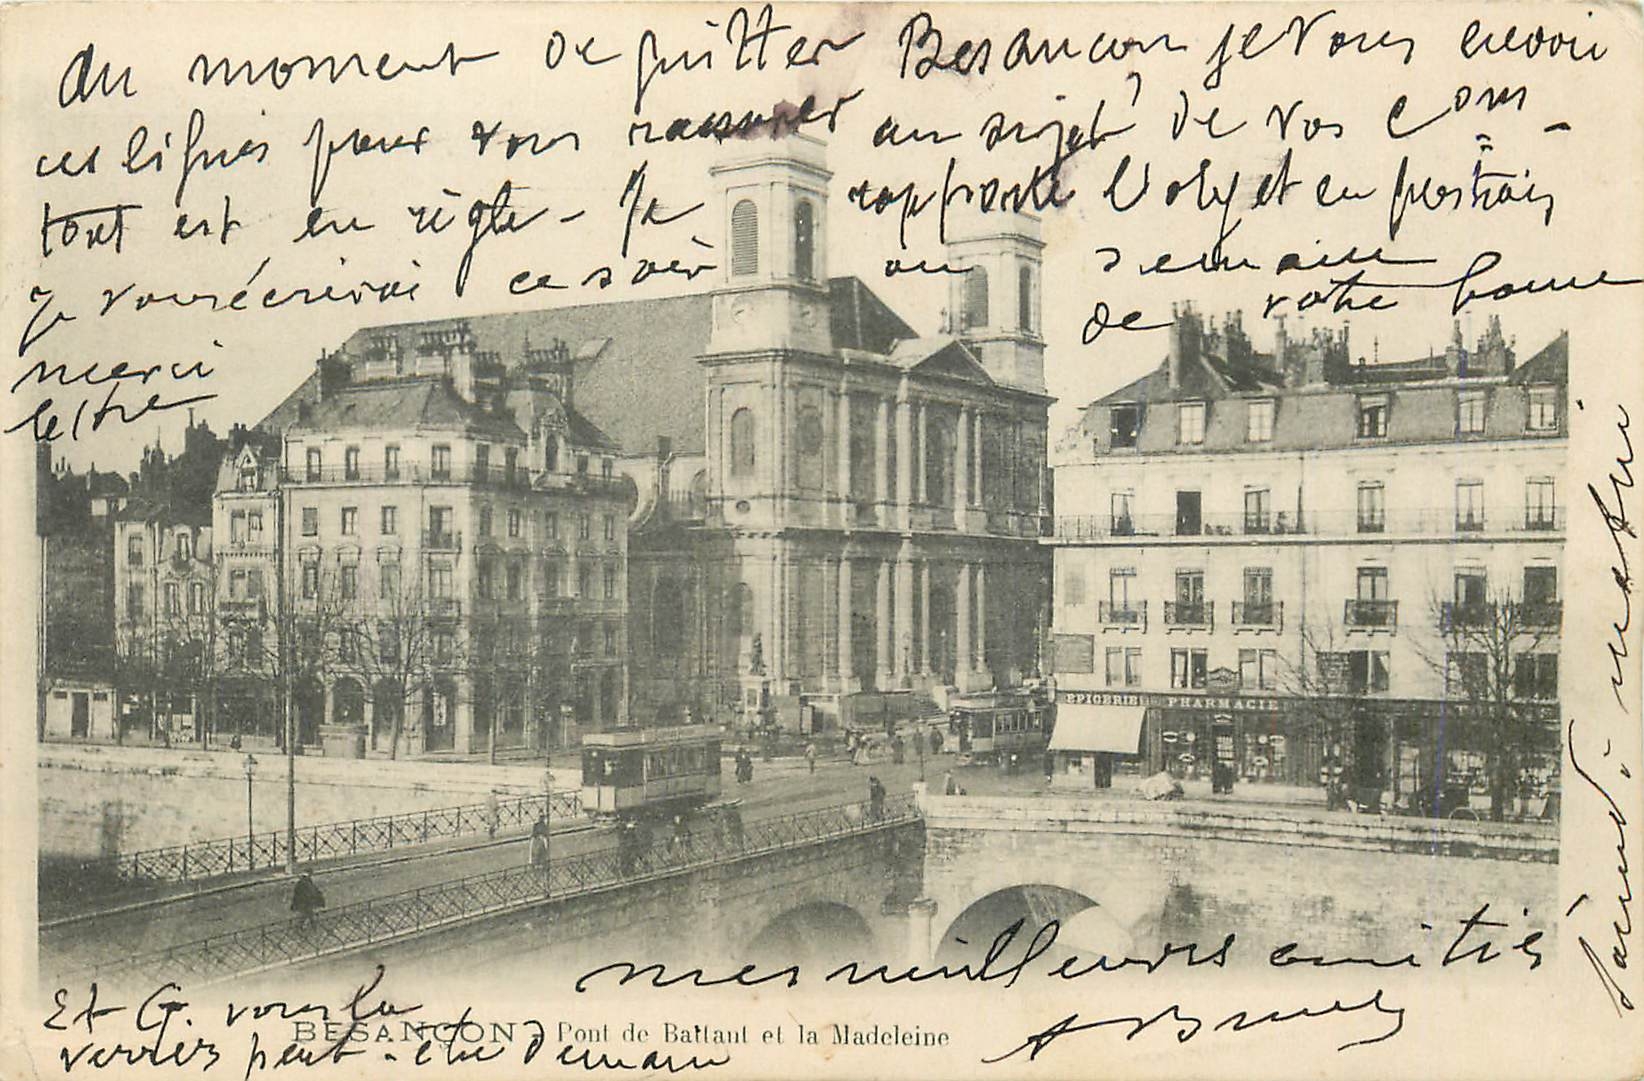 Au moment de quitter Besancon je vous envoi
ces lignes pour vous rassurer au sujet de vos Com-
tout est en règle - Je rapporte l'objet en question
Je vous écrirai ce soir ou demain
merci de votre bonne
lettre
Samedi matin
EPICERIE PHARMACIE
mes meilleures amitiés
Et G. vous la
verrez peut-etre demain
BESANÇON - Pont de Battant et la Madeleine